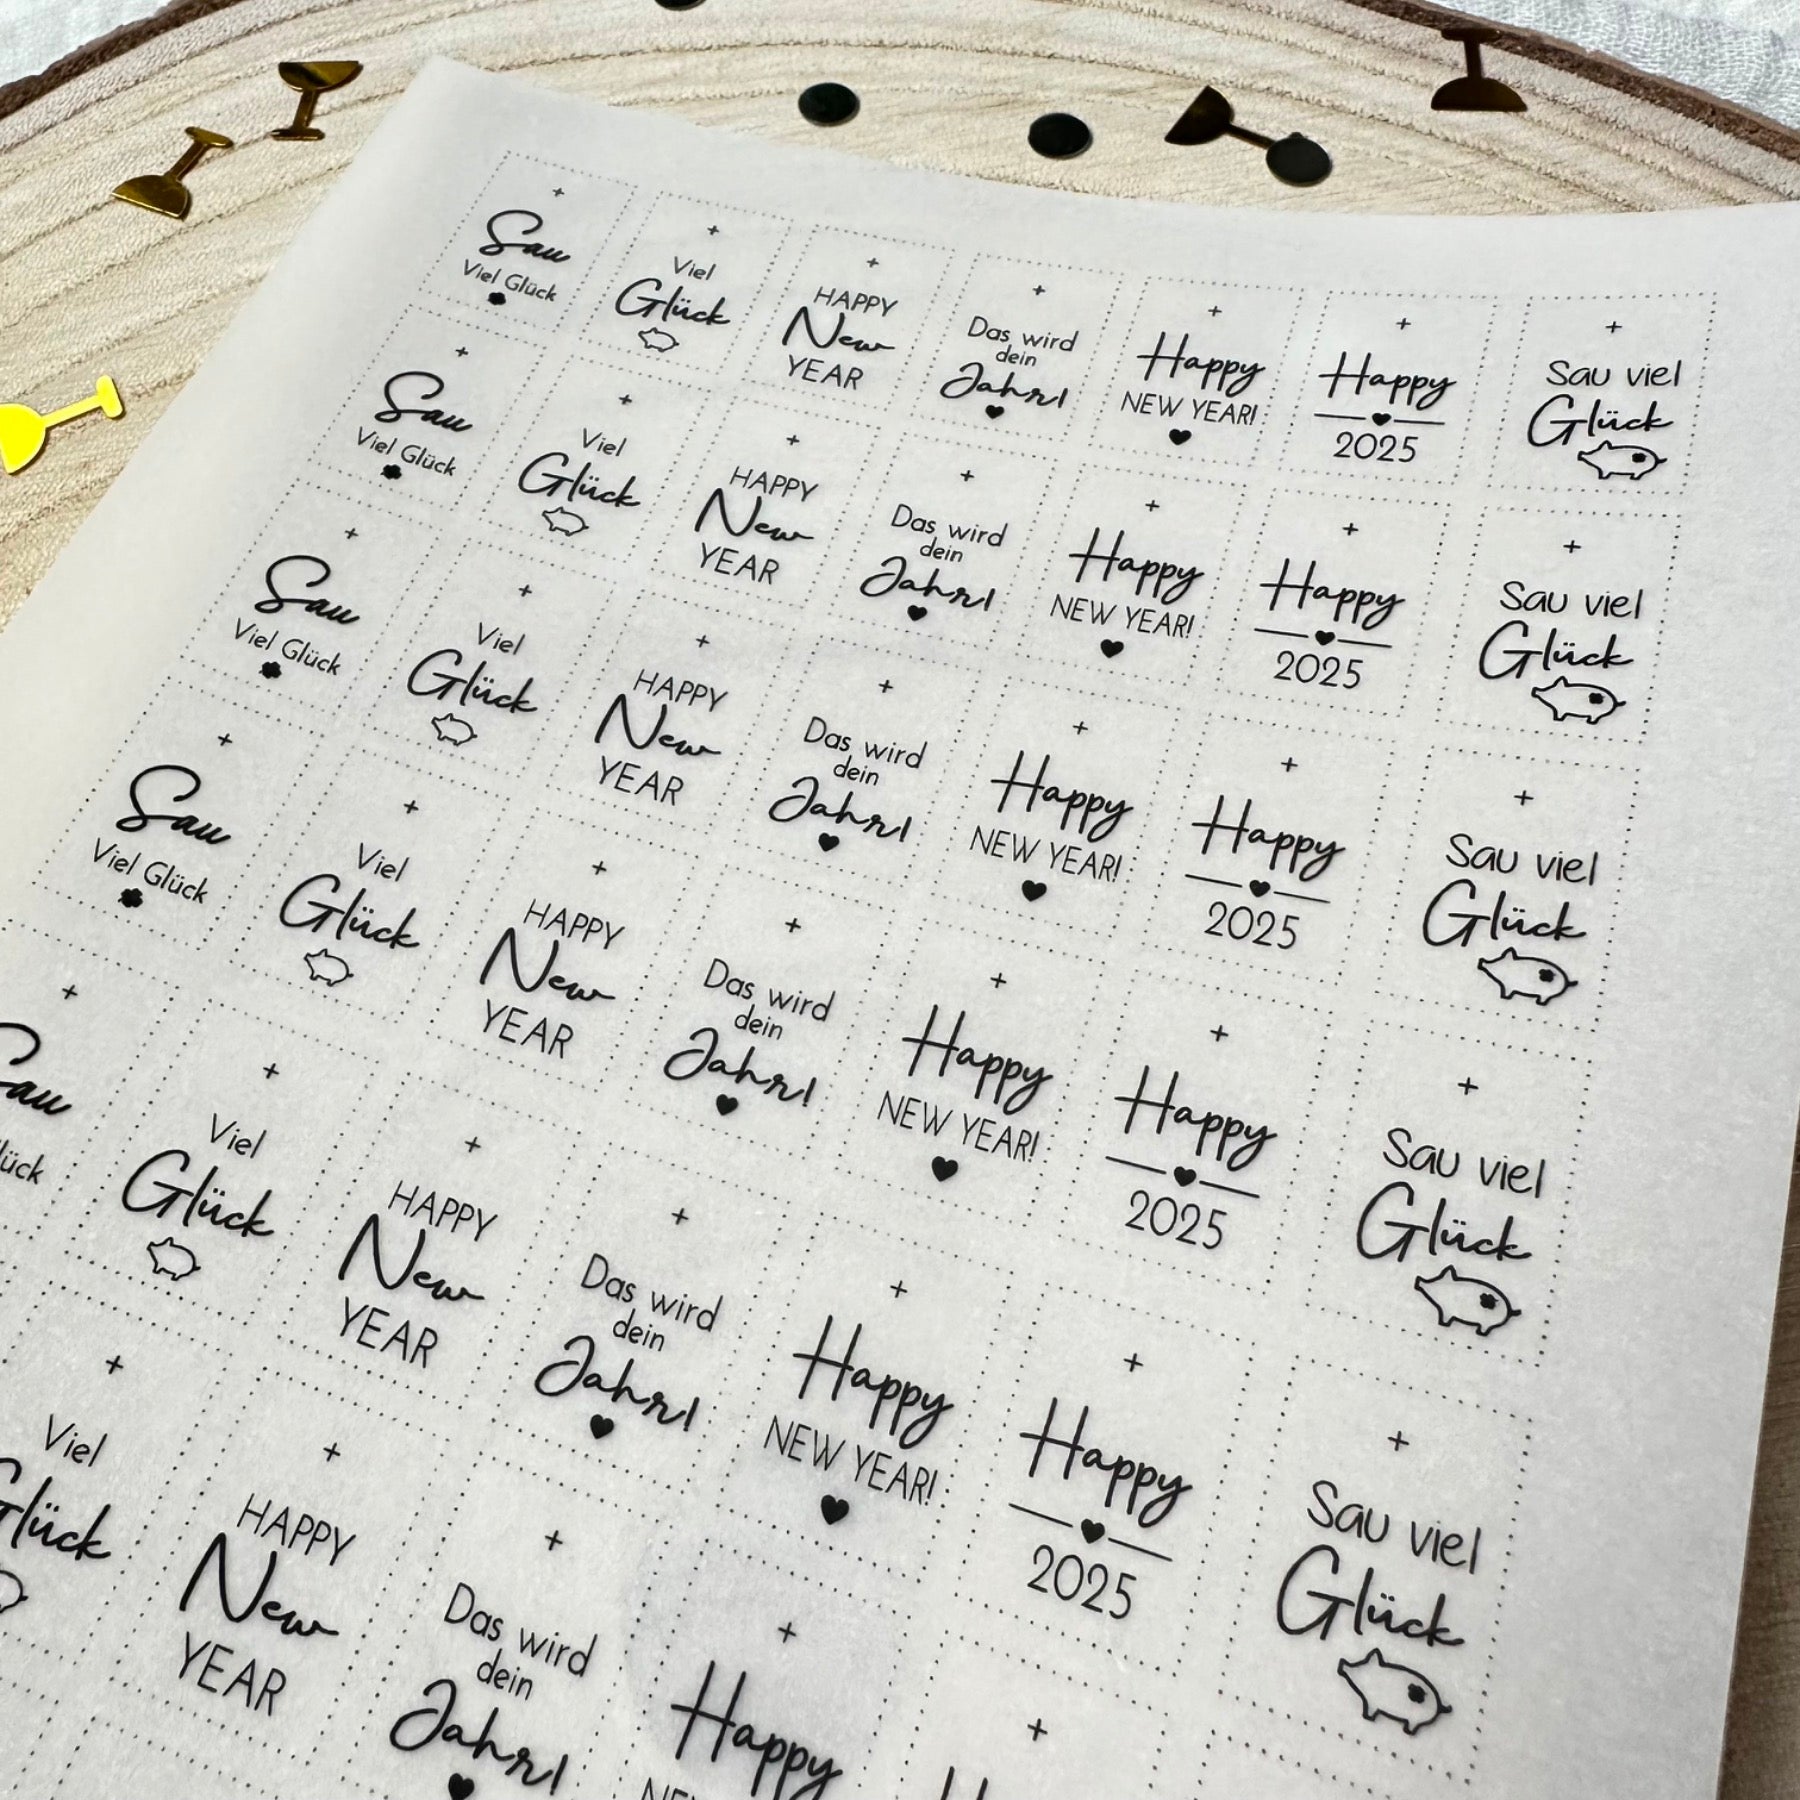 Sau
Viel Glück
Viel
Glück
HAPPY
New
YEAR
Das wird
dein
Jahr!
Happy
NEW YEAR!
Happy
2025
Sau viel
Glück
Sau
Viel Glück
Viel
Glück
HAPPY
New
YEAR
Das wird
dein
Jahr!
Happy
NEW YEAR!
Happy
2025
Sau viel
Glück
Sau
Viel Glück
Viel
Glück
HAPPY
New
YEAR
Das wird
dein
Jahr!
Happy
NEW YEAR!
Happy
2025
Sau viel
Glück
Sau
Viel Glück
Viel
Glück
HAPPY
New
YEAR
Das wird
dein
Jahr!
Happy
NEW YEAR!
Happy
2025
Sau viel
Glück
Sau
lück
Viel
Glück
HAPPY
New
YEAR
Das wird
dein
Jahr!
Happy
NEW YEAR!
Happy
2025
Sau viel
Glück
Viel
Glück
HAPPY
New
YEAR
Das wird
dein
Jahr!
Happy